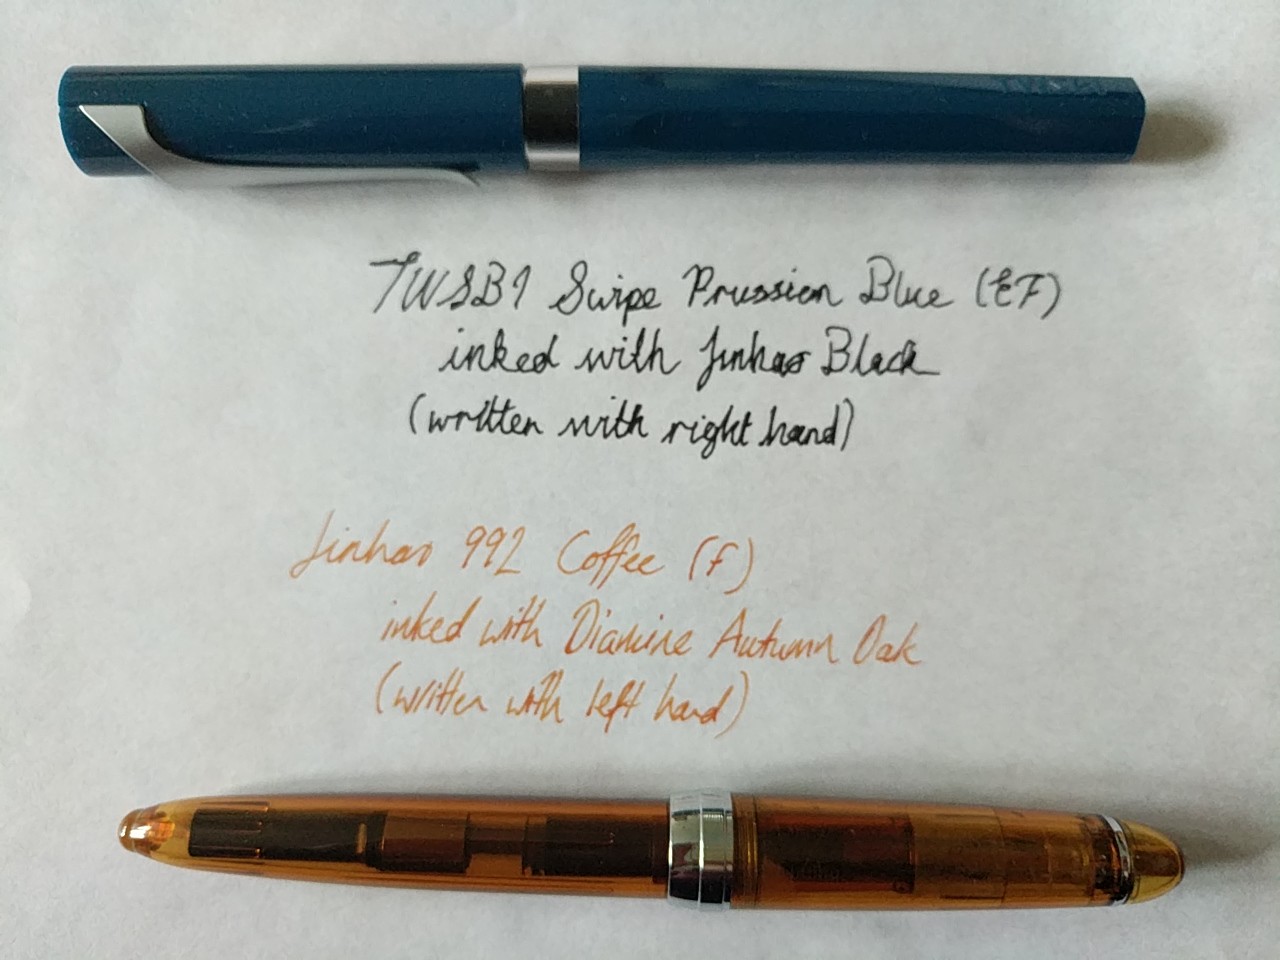 TWSBI Swipe Prussian Blue (EF)
inked with Jinhao Black
(written with right hand)
Jinhao 992 Coffee (F)
inked with Diamine Autumn Oak
(written with left hand)